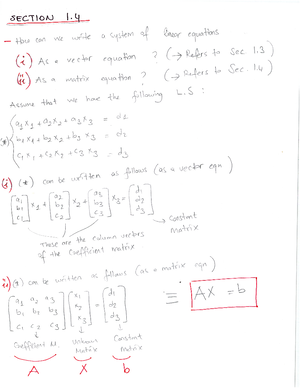 SECTION 1.4
- How can we write a system of linear equations
(i) As a vector equation ? (→ Refers to Sec 1.3)
(ii) As a matrix equation ? (→ Refers to Sec. 1.4)
Assume that we have the following L.S :
a₁x₁ + a₂x₂ + a₃x₃ = d₁
(*) b₁x₁ + b₂x₂ + b₃x₃ = d₂
c₁x₁ + c₂x₂ + c₃x₃ = d₃
(i) (*) can be written as follows (as a vector eqn)
[a₁ b₁ c₁] x₁ + [a₂ b₂ c₂] x₂ + [a₃ b₃ c₃] x₃ = [d₁ d₂ d₃]
→ Constant matrix
These are the column vectors
of the coefficient matrix
ii) (*) can be written as follows (as a matrix eqn)
[a₁ a₂ a₃] [x₁] [d₁]
[b₁ b₂ b₃] [x₂] = [d₂] ≡ AX = b
[c₁ c₂ c₃] [x₃] [d₃]
Coefficient M. Unknown Matrix Constant Matrix
A X b